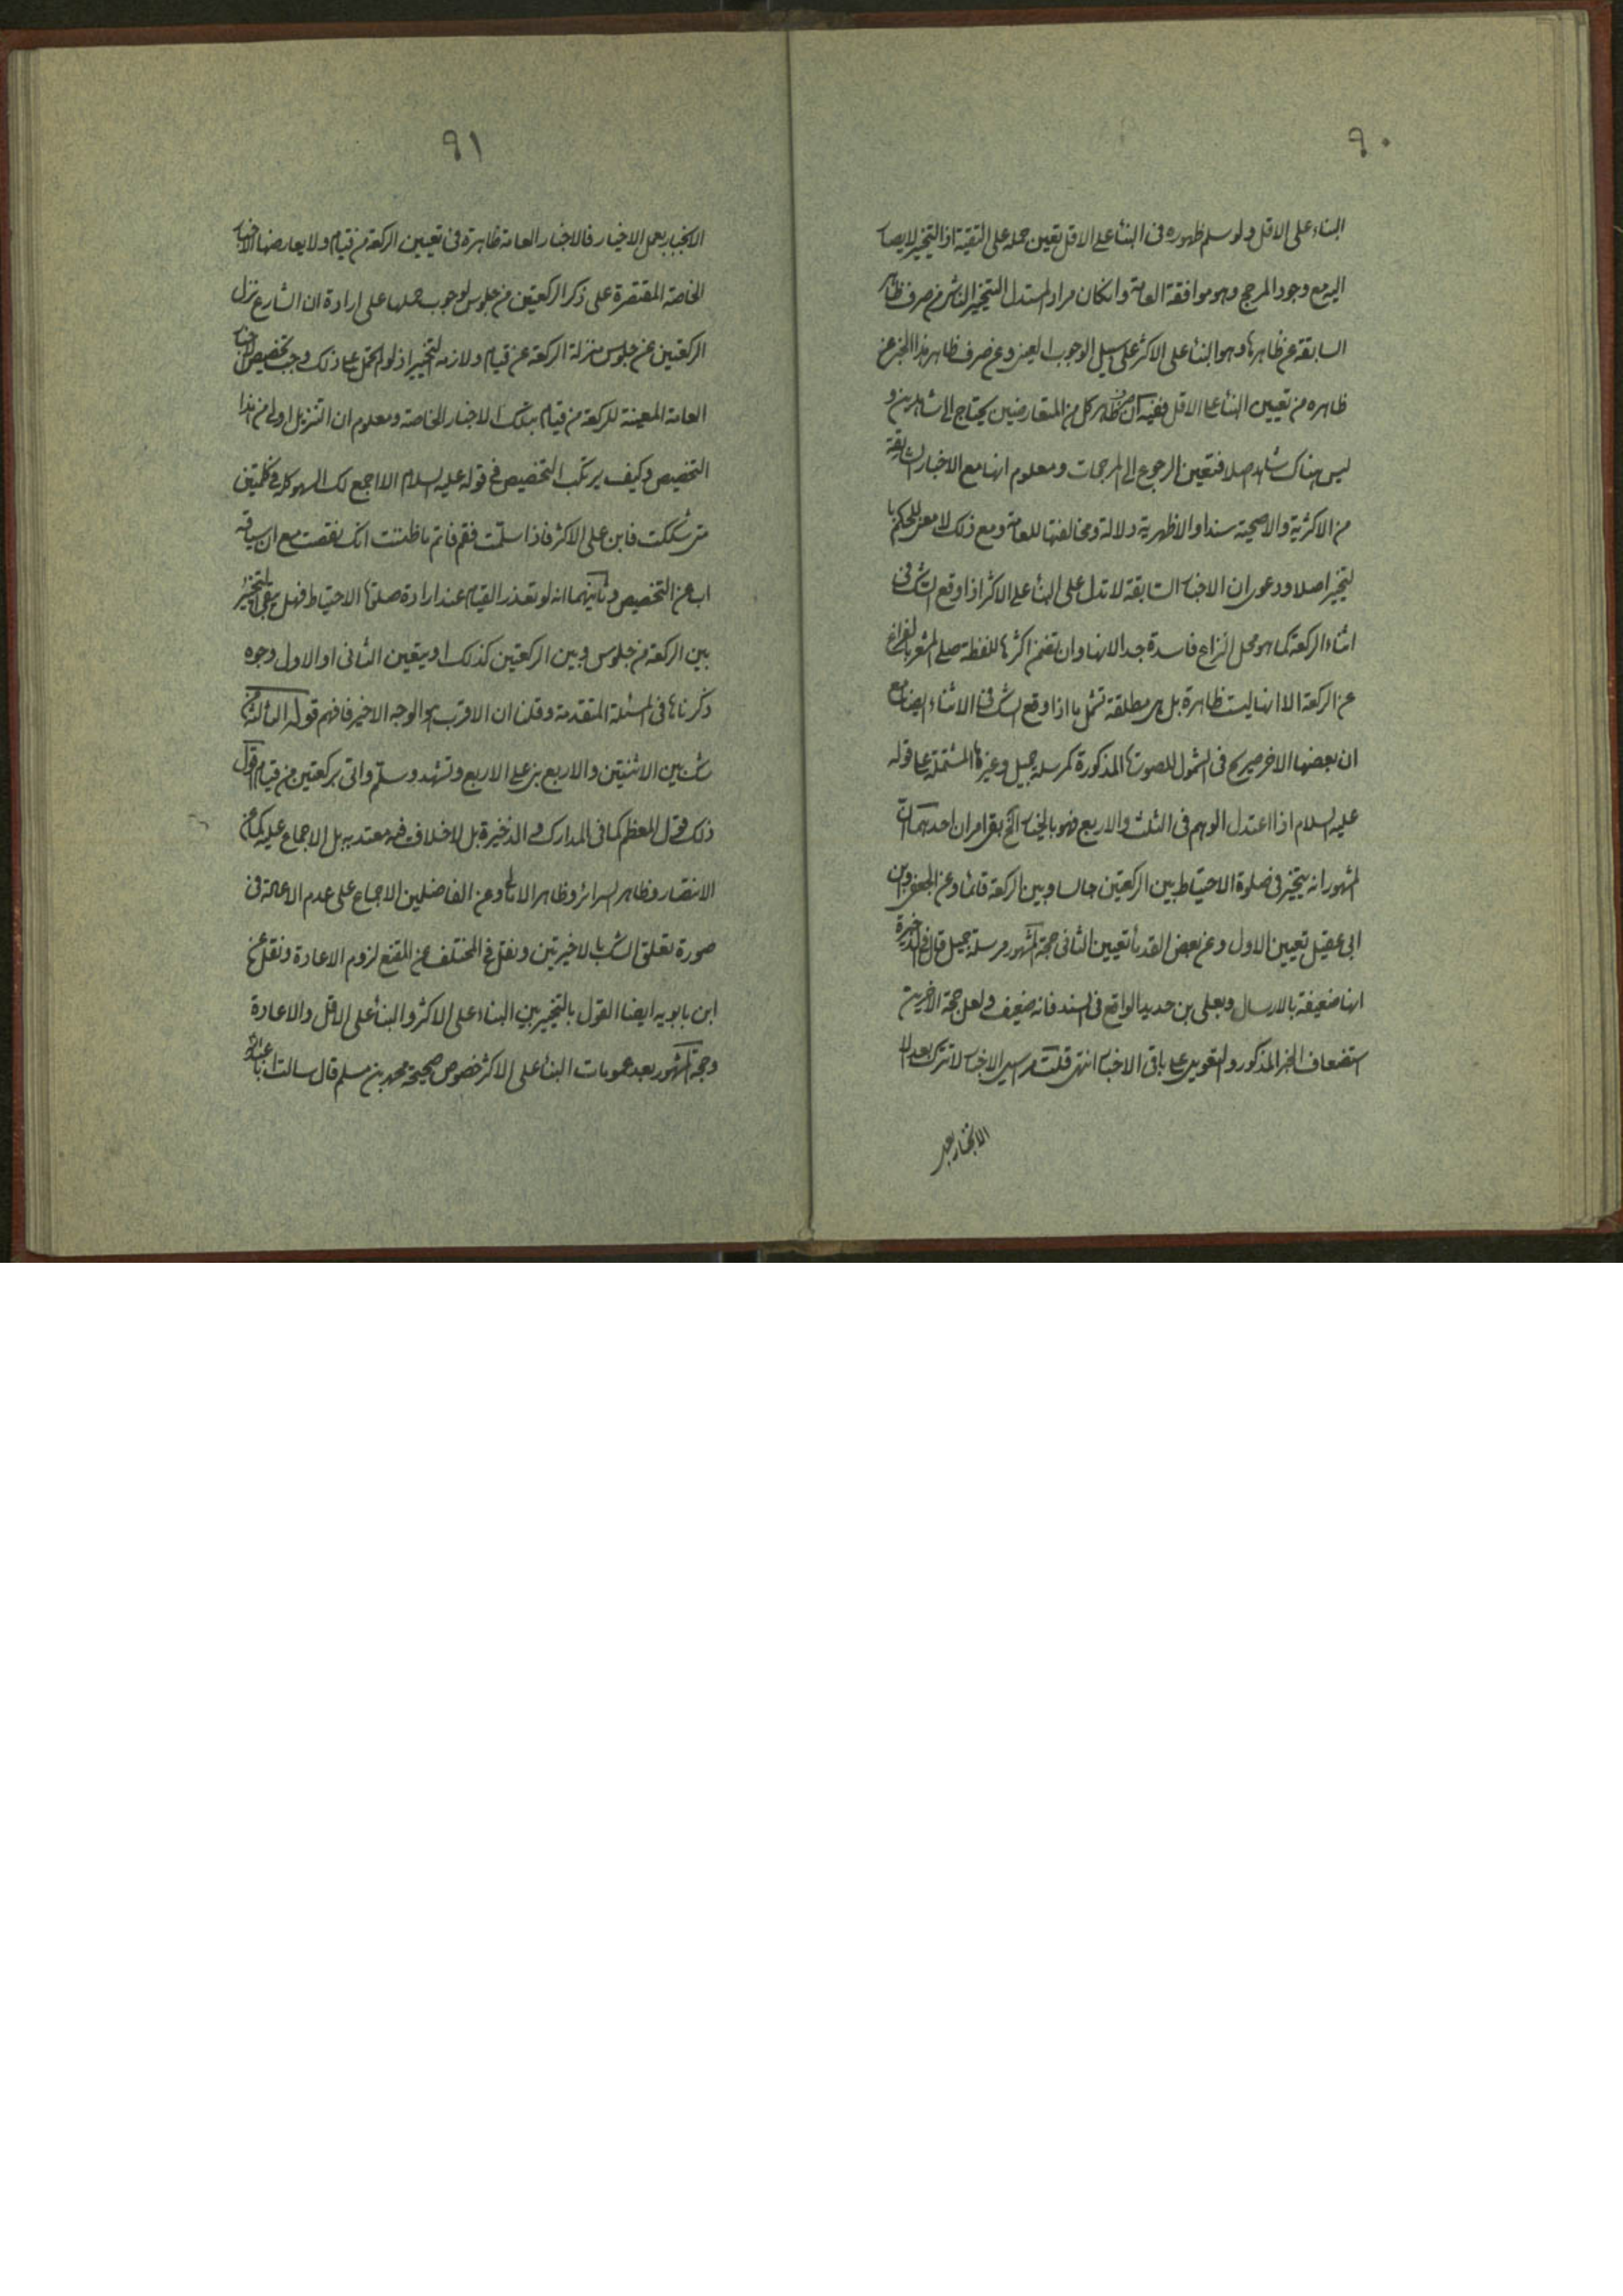 ٩٠
البناء على الاقل ولو سلم ظهوره فى البناء على الاقل تعين حمله على التقية اذ التخيير لا يصار
اليه مع وجود المرجح وهو موافقة العامة وانكان مراد المستدل التخيير الناشى من صرف ظاهر
السابقة عن ظاهرها وهو البناء على الاكثر على سبيل الوجوب العينى وعن صرف ظاهر هذا الخبر عن
ظاهره من تعيين البناء على الاقل ففيه ان صرف ظاهر كل من المتعارضين يحتاج الى شاهدين و
ليس هناك شاهد اصلا فتعين الرجوع الى المرجحات ومعلوم انها مع الاخبار السابقة
من الاكثرية والاصحية سندا والاظهرية دلالة ومخالفتها للعامة ومع ذلك لا معنى للحكم با
لتخيير اصلا ودعوى ان الاخبار السابقة لا تدل على البناء على الاكثر اذا وقع الشك فى
اثناء الركعة كما هو محل النزاع فاسدة جدا لانها وان تضمن اكثرها للفظه صلى المشعر بالفراغ
عن الركعة الا انها ليست ظاهرة بل هى مطلقة تشمل ما اذا وقع الشك فى الاثناء ايضا مع
ان بعضها الاخر صريح فى الشمول للصورة المذكورة كمرسلة جميل وغيرها المشتملة على قوله
عليه السلام اذا اعتدل الوهم فى الثلث والاربع فهو بالخيار الخ بقى امران احدهما ان
المشهور انه يتخير فى صلوة الاحتياط بين الركعتين جالسا وبين الركعة قائما وعن الجعفى وابن
ابى عقيل تعيين الاول وعن بعض القدماء تعيين الثانى حجة المشهور مرسلة جميل قال فى الذخيرة
انها ضعيفة بالارسال وبعلى بن حديد الواقع فى السند فانه ضعيف ولعل حجة الاخرين
استضعاف الخبر المذكور والتعويل على باقى الاخبار انتهى قلت مراسيل الاخبار لا تترك بعد الا
الانجبار بعمل
٩١
الانجبار بعمل الاخيار فالاخبار العامة ظاهرة فى تعيين الركعة من قيام ولا يعارضها الاخبار
الخاصة المقتصرة على ذكر الركعتين من جلوس لوجوب حملها على ارادة ان الشارع نزل
الركعتين عن جلوس منزلة الركعة عن قيام ولازمه التخيير اذ لو لم تحمل على ذلك وجب تخصيص الاخبار
العامة المعينة للركعة من قيام بتلك الاخبار الخاصة ومعلوم ان التنزيل اولى من هذا
التخصيص وكيف يرتكب التخصيص فى قوله عليه السلام الا اجمع لك السهو كله فى كلمتين
متى شككت فابن على الاكثر فاذا سلمت فقم فاتم ما ظننت انك نقصت مع ان سياقه
اب عن التخصيص وثانيهما انه لو تعذر القيام عند ارادة صلوة الاحتياط فهل يبقى التخيير
بين الركعة من جلوس وبين الركعتين كذلك او يتعين الثانى او الاول وجوه
ذكرناها فى المسئلة المتقدمة وقلنا ان الاقرب هو الوجه الاخير فافهم قوله الثالثة من
شك بين الاثنتين والاربع بنى على الاربع وتشهد وسلم واتى بركعتين من قيام اقول
ذلك قول المعظم كما فى المدارك والذخيرة بل لا خلاف فيه معتد به بل الاجماع عليه كما عن
الانتصار وظاهر السرائر وظاهر الامالى وعن الفاضلين الاجماع على عدم الاعادة فى
صورة تعلق الشك بالاخيرتين ونقل فى المختلف عن المقنع لزوم الاعادة ونقل عن
ابن بابويه ايضا القول بالتخيير بين البناء على الاكثر والبناء على الاقل والاعادة
وحجة المشهور بعد عمومات البناء على الاكثر خصوص صحيحة محمد بن مسلم قال سالت ابا عبد الله